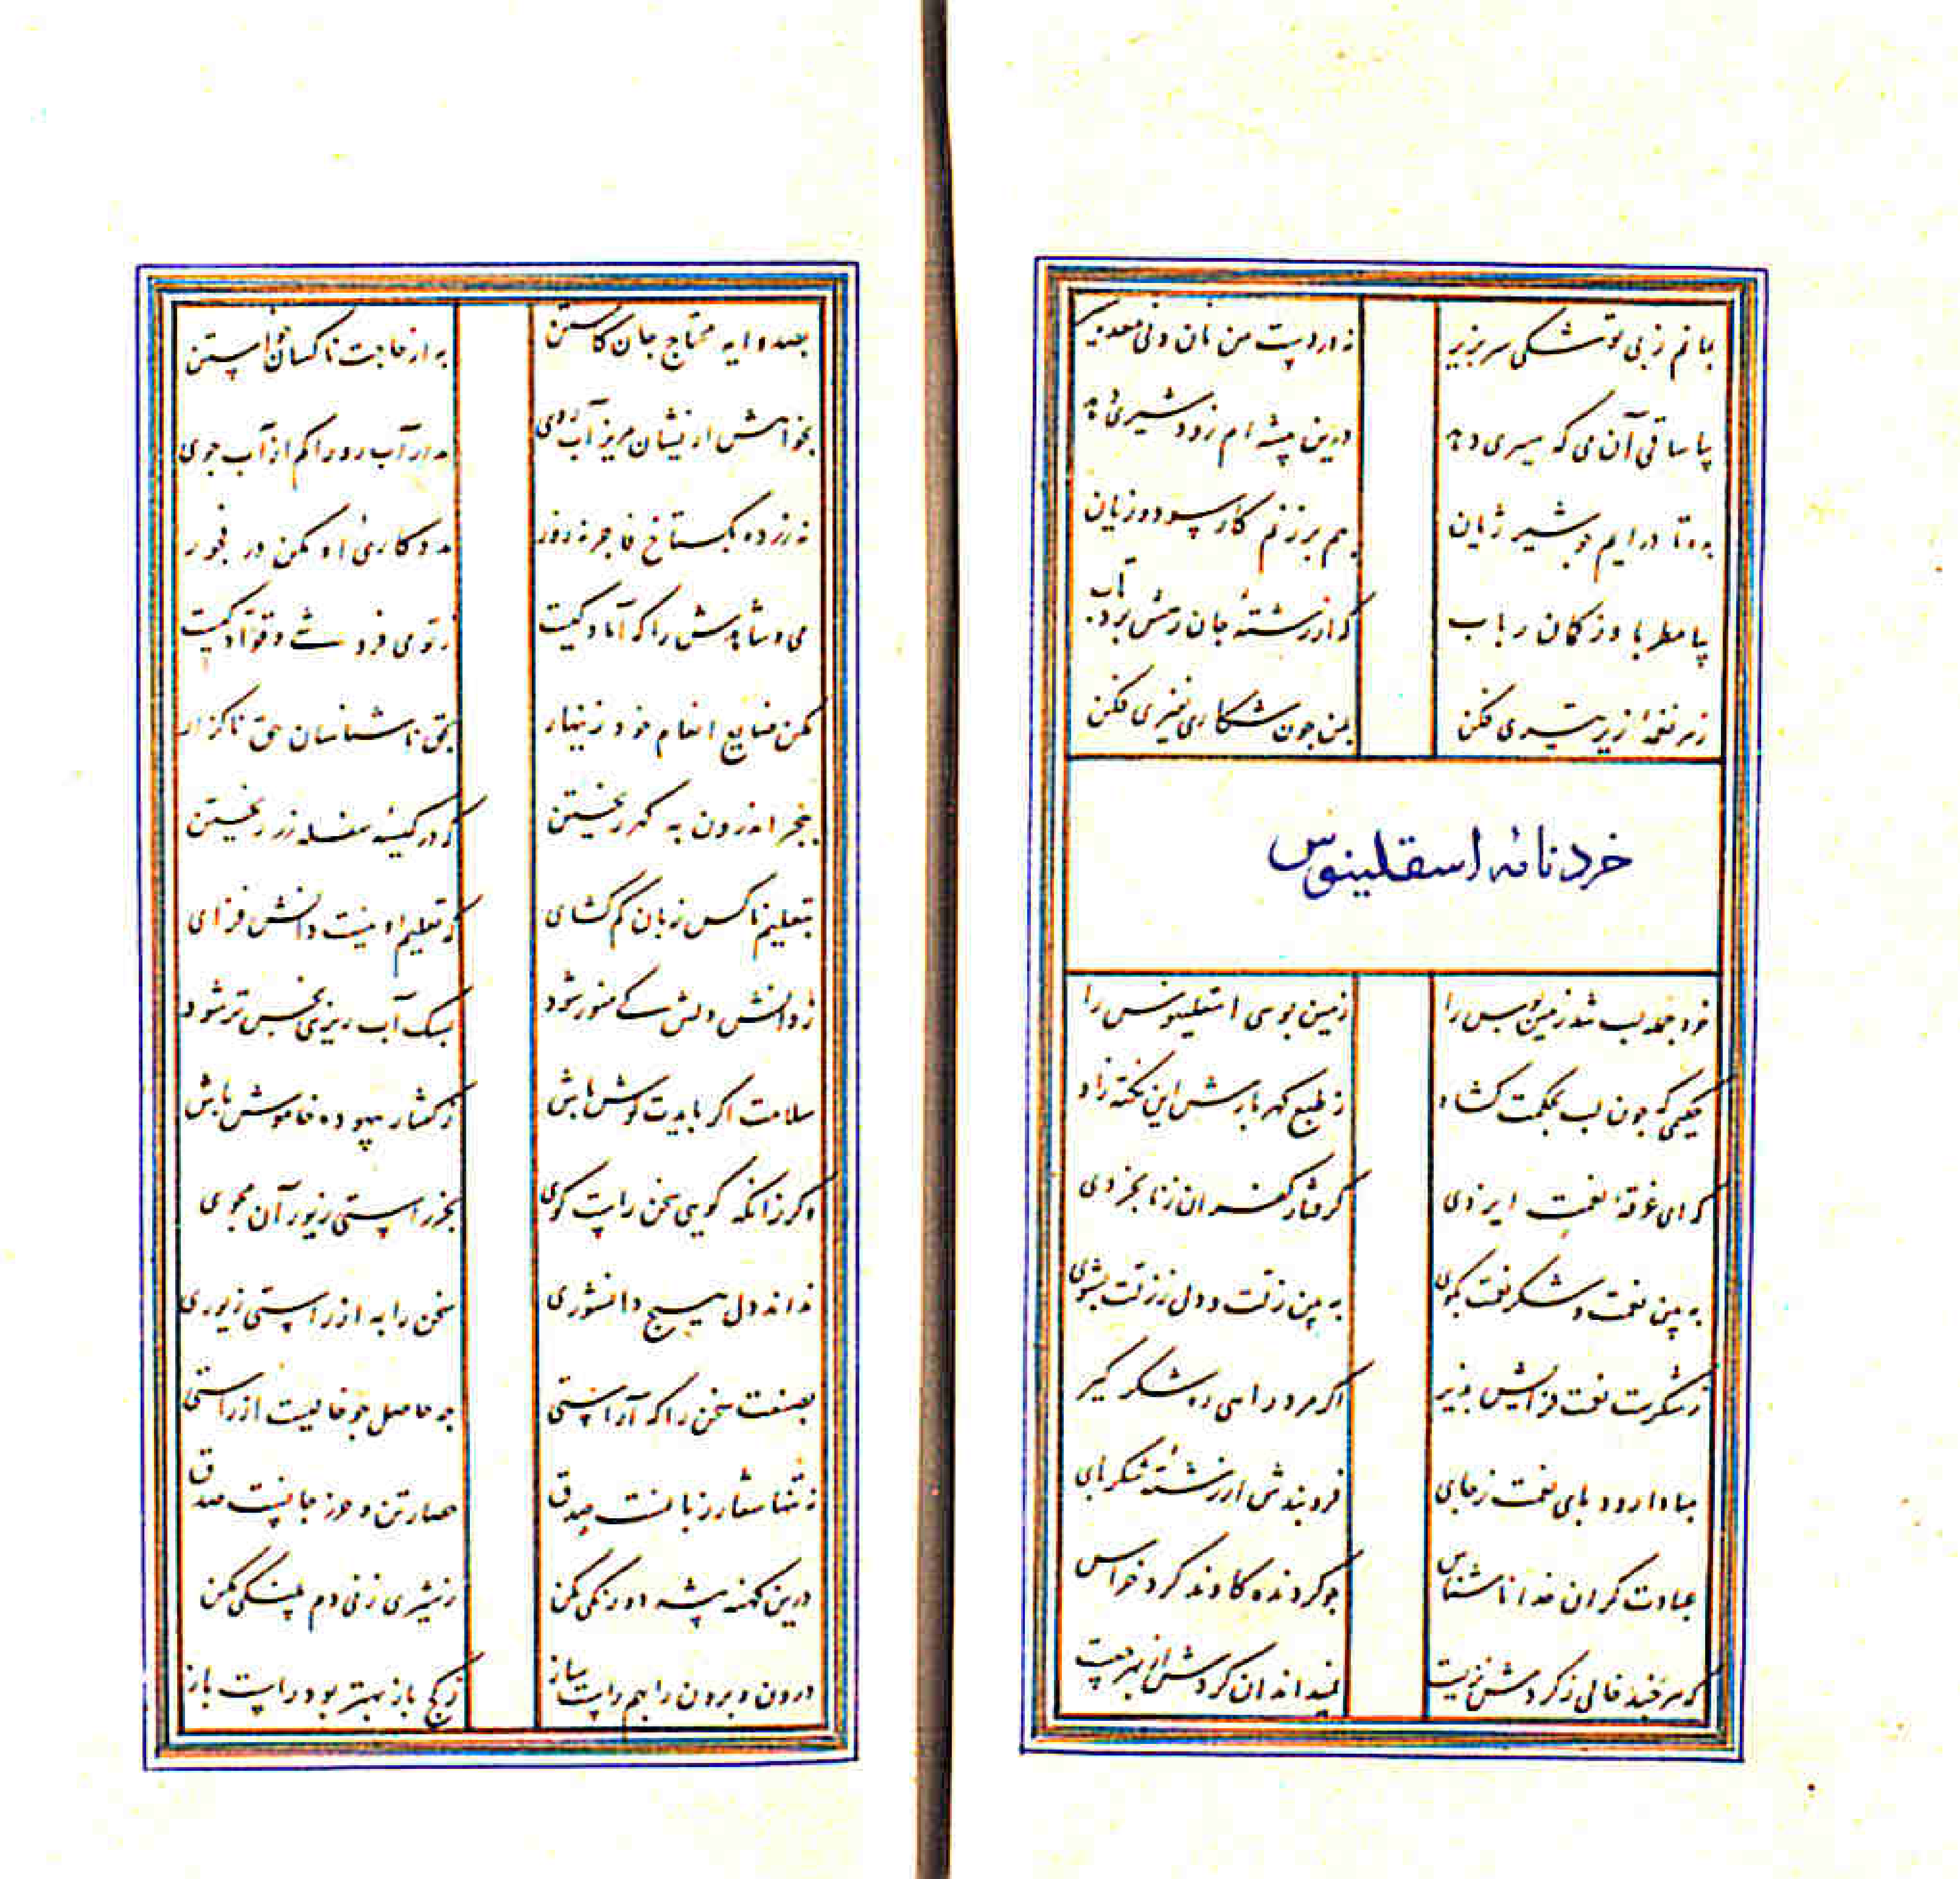 بمانم ز بی توشگی سر بزیر نه در دست من نان ونی معده سیر
بیا ساقی آن می که سیری دهد درین بیشه ام زور شیری دهد
بده تا درایم چو شیر ژیان بهم برزنم کار سود و زیان
بیا مطربا وز کمان رباب که از رشتهٔ جان زهش برد تاب
ز هر نغمه از زیر تیری فکن بمن چون شکاری نفیری فکن
خردنامهٔ اسقلینوس
خرد جمله لب شد زمین بوس را زمین بوسی اسقلینوس را
حکیمی که چون لب بحکمت گشاد ز طبع گهر بارش این نکته زاد
که ای غرقهٔ نعمت ایزدی گرفتار کفران ز نابخردی
به بین نعمت و شکر نعمت بگوی به بین زلت و دل ز زلت بشوی
ز شکرت نعمت فزایش پذیر اگر مرد راهی ره شکر گیر
مبادا رود پای نعمت ز جای فرو بندش از رشتهٔ شکر پای
عبادت گران خدا ناشناس چو گردنده گاوند گرد خراس
که هر چند خالی ز گردش نزیست نمیداند آن گردش از بهر چیست
بصد وایه محتاج جان کاستن به از حاجت ناکسان خواستن
بخواهش از یشان مریز آب روی مدار آب رو را کم از آب جوی
نه زر ده بگستاخ فاجر نه زور مددکاری او مکن در فجور
می و شاهدش را که آماده کیست ز تو می فروش و قواد کیست
مکن ضایع انعام خود زینهار بحق ناشناسان حق ناگزار
بخجر اندرون به گهر ریختن که در کیسهٔ سفله زر ریختن
بتعلیم ناکس زبان کم گشای که تعلیم او نیست دانش فزای
ز دانش دلش کی منور شود بسگ آب ریزی نجس تر شود
سلامت اگر بایدت گوش باش ز گفتار بیهوده خاموش باش
وگر زانکه گویی سخن راست گوی بجز راستی زیور آن مجوی
نداند دل هیچ دانشوری سخن را به از راستی زیوری
بصنعت سخن را که آراستی چه حاصل چو خالیست از راستی
نه تنها شعار زبانست صدق حصار تن و حرز جانست صدق
درین کهنه بیشه دو رنگی مکن ز شیری زنی دم پلنگی مکن
درون و برون را بهم راست ساز ز کج باز بهتر بود راست باز